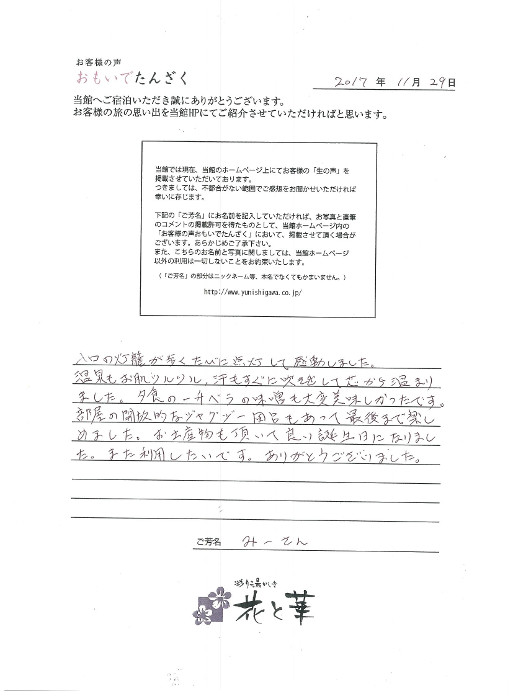 お客様の声
おもいでたんざく
2017 年 11 月 29 日
当館へご宿泊いただき誠にありがとうございます。
お客様の旅の思い出を当館HPにてご紹介させていただければと思います。
当館では現在、当館のホームページ上にてお客様の「生の声」を
掲載させていただいております。
つきましては、不都合がない範囲でご感想をお聞かせいただければ
幸いに存じます。
下記の「ご芳名」にお名前を記入していただければ、お写真と直筆
のコメントの掲載許可を得たものとして、当館ホームページ内の
「お客様の声おもいでたんざく」において、掲載させて頂く場合が
ございます。あらかじめご了承下さい。
また、こちらのお名前と写真に関しましては、当館ホームページ
以外の利用は一切しないことをお約束いたします。
（「ご芳名」の部分はニックネーム等、本名でなくてもかまいません。）
http://www.yunishigawa.co.jp/
入口の灯籠が歩くたびに点灯して感動しました。
温泉もお肌ツルツル、汗もすぐに吹き出して芯から温まり
ました。夕食の一升ベラの味噌も大変美味しかったです。
部屋の開放的なジャグジー風呂もあって最後まで楽し
めました。お土産物も頂いて良い誕生日になりまし
た。また利用したいです。ありがとうございました。
ご芳名 みーさん
花と華